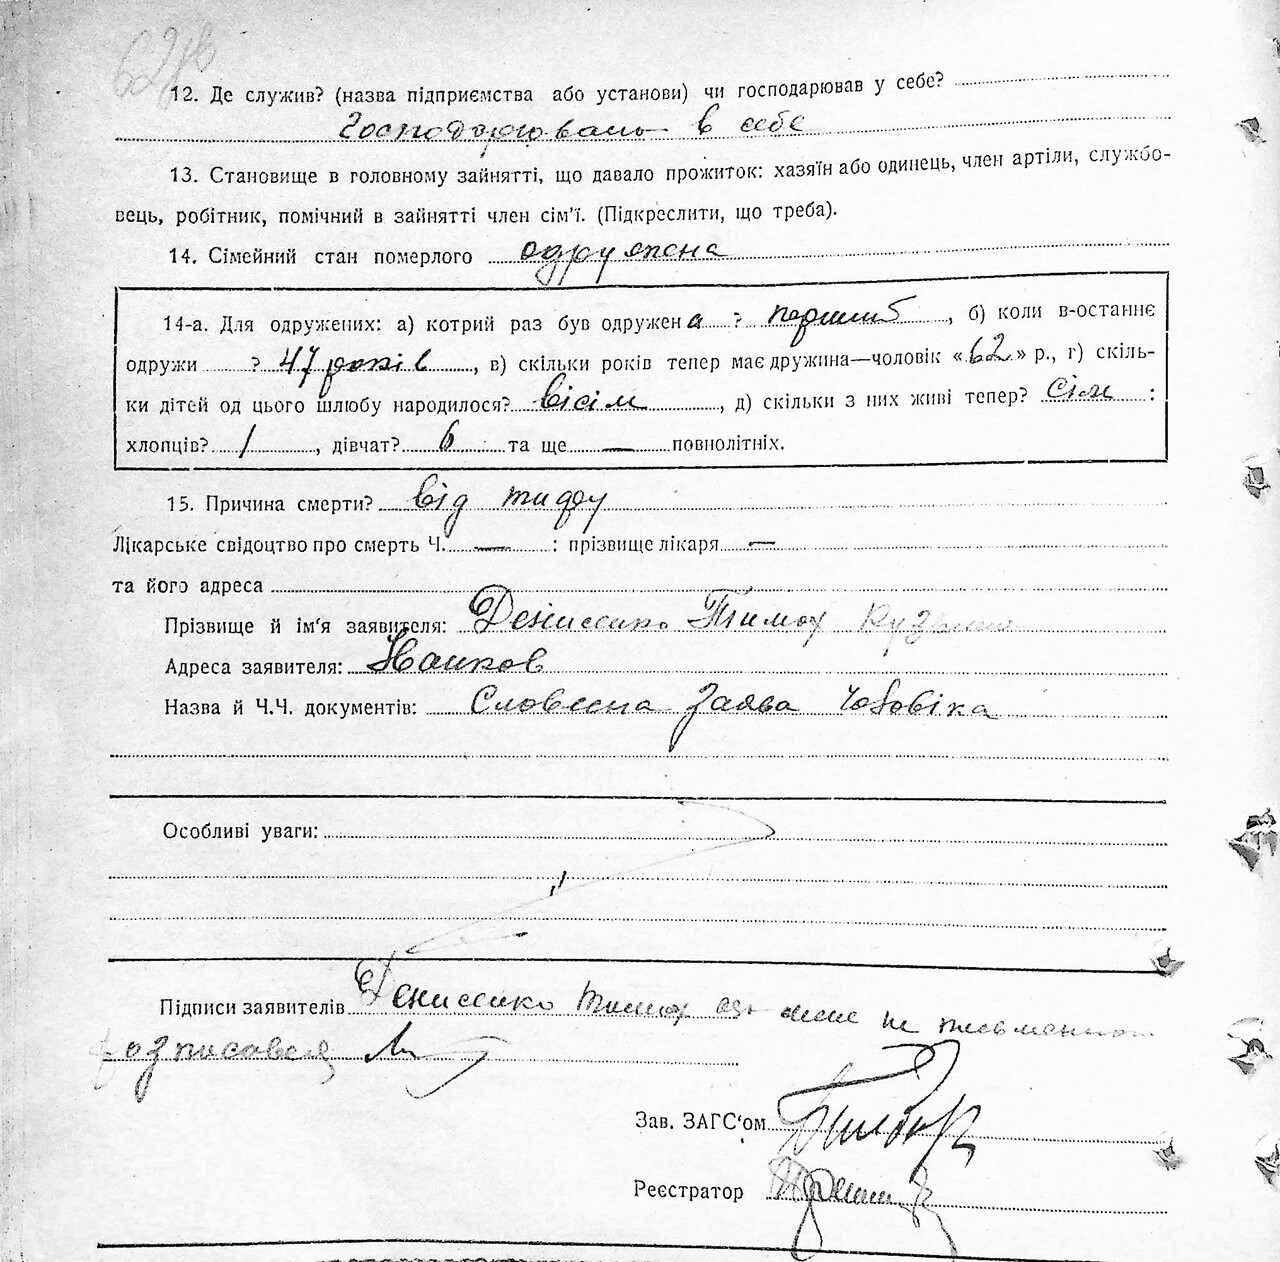 12. Де служив? (назва підприємства або установи) чи господарював у себе?
Господарювала в себе
13. Становище в головному зайнятті, що давало прожиток: хазяїн або одинець, член артіли, службо-
вець, робітник, помічний в зайнятті член сім'ї. (Підкреслити, що треба).
14. Сімейний стан померлого одружена
14-а. Для одружених: а) котрий раз був одружена? перший, б) коли в-останнє
одружи ? 47 років, в) скільки років тепер має дружина—чоловік «62» р., г) скіль-
ки дітей од цього шлюбу народилося? вісім, д) скільки з них живі тепер? сім :
хлопців? 1, дівчат? 6 та ще — повнолітніх.
15. Причина смерти? від тифу
Лікарське свідоцтво про смерть Ч. — : прізвище лікаря —
та його адреса
Прізвище й ім'я заявителя: Денисенко Тимох Кузьмич
Адреса заявителя:
Назва й Ч.Ч. документів: Словесна заява чоловіка
Особливі уваги:
Підписи заявителів Денисенко Тимох не письменного
розписався
Зав. ЗАГС'ом
Реєстратор